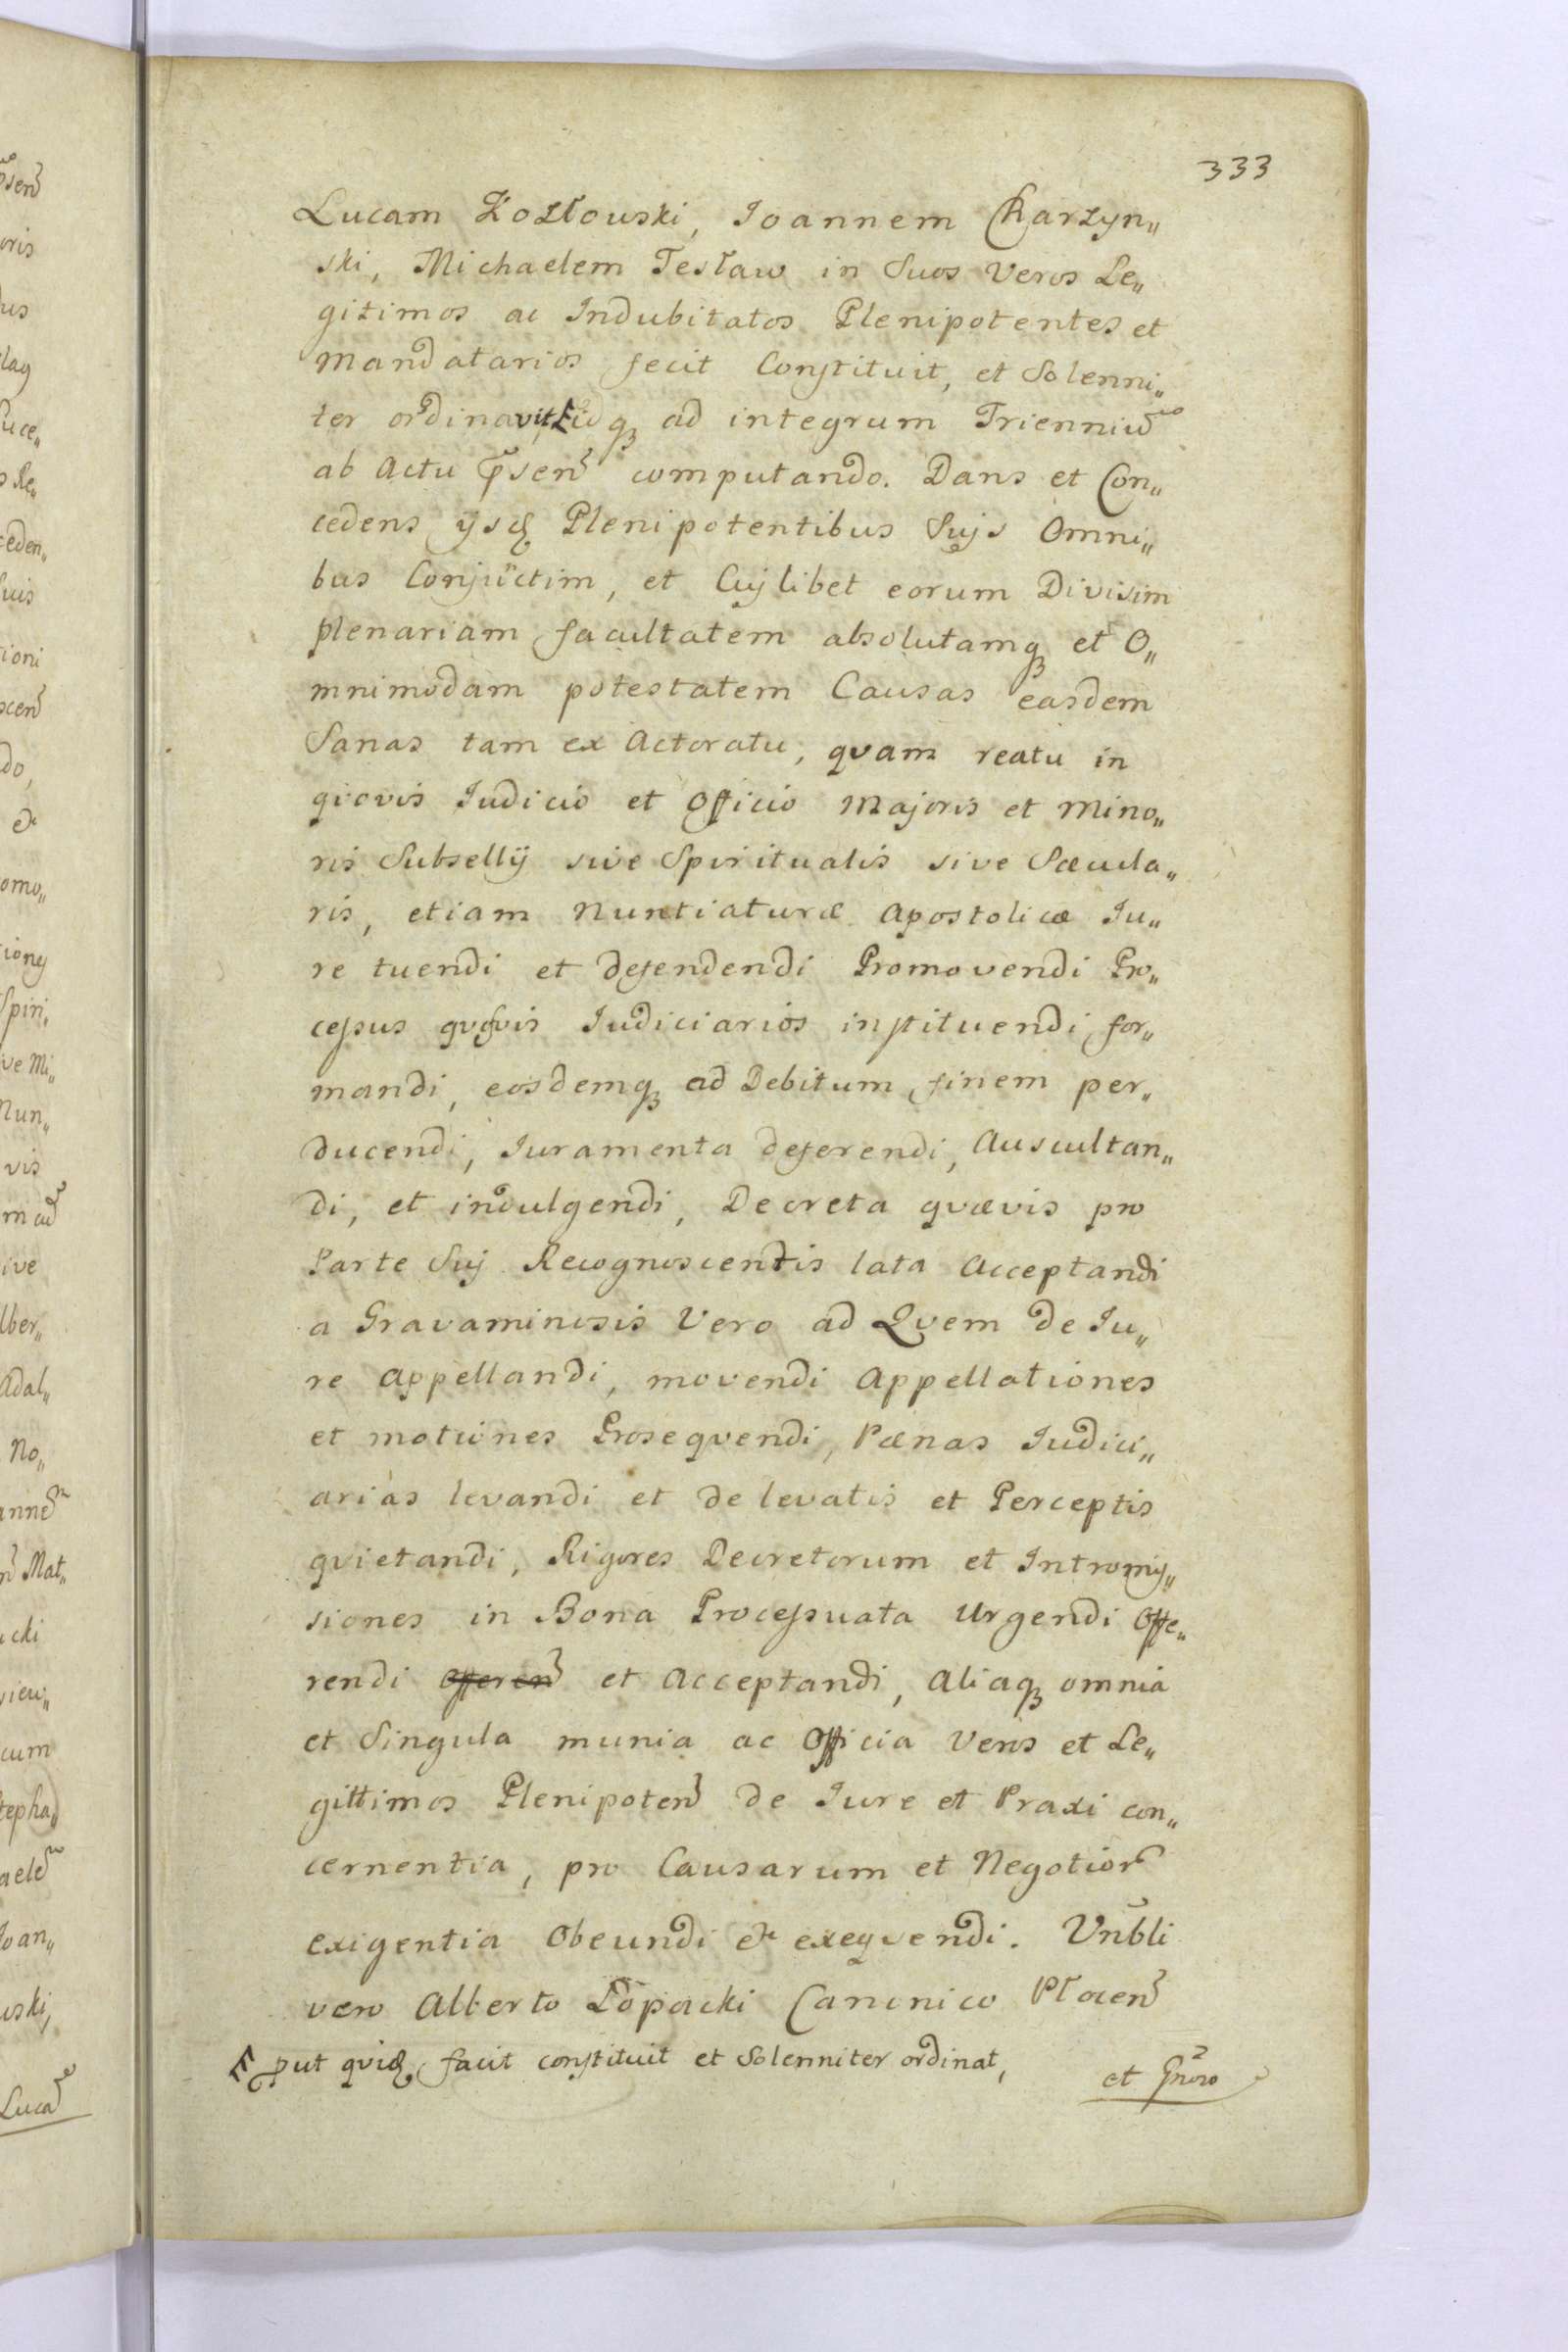 333
Lucam Kozłowski, Joannem Charzyn„
ski, Michaelem Tesław in Suos Veros Le„
gitimos ac Indubitatos Plenipotentes et
mandatarios fecit Constituit, et Solenni„
ter ordinavit, idq; ad integrum Trienniu͠
ab Actu p̃sen͠ computando. Dans et Con„
cedens ijsd͠ Plenipotentibus Suis Omni„
bus Conju͠ctim, et Cuilibet eorum Divisim
plenariam facultatem absolutamq; et O„
mnimodam potestatem Causas easdem
Sanas tam ex Actoratu, quam reatu in
quovis Judicio et Officio Majoris et Mino„
ris Subsellij sive Spiritualis sive Sæcula„
ris, etiam Nuntiaturæ Apostolicæ Ju„
re tuendi et defendendi Promovendi Pro„
cessus quosvis Judiciarios instituendi for„
mandi, eosdemq; ad Debitum finem per„
ducendi, Juramenta deferendi, Auscultan„
di, et indulgendi, Decreta quævis pro
Parte Sui Recognoscentis lata Acceptandi
a Gravaminosis Vero ad Quem de Ju„
re appellandi, movendi Appellationes
et motiones Prosequendi, Pænas Judici„
arias levandi et de levatis et Perceptis
quietandi, Rigores Decretorum et Intromis„
siones in Bona Processuata Urgendi Offe„
rendi offeren͠ et Acceptandi, Aliaq; omnia
et Singula munia ac Officia Veros et Le„
gittimos Plenipoten͠ de Jure et Praxi con„
cernentia, pro Causarum et Negotior͠
exigentia Obeundi et exequendi. Vn͠bli
vero Alberto Łopacki Canonico Płocen͠
put quid͠ facit constituit et Solenniter ordinat,
et Gn͠roso